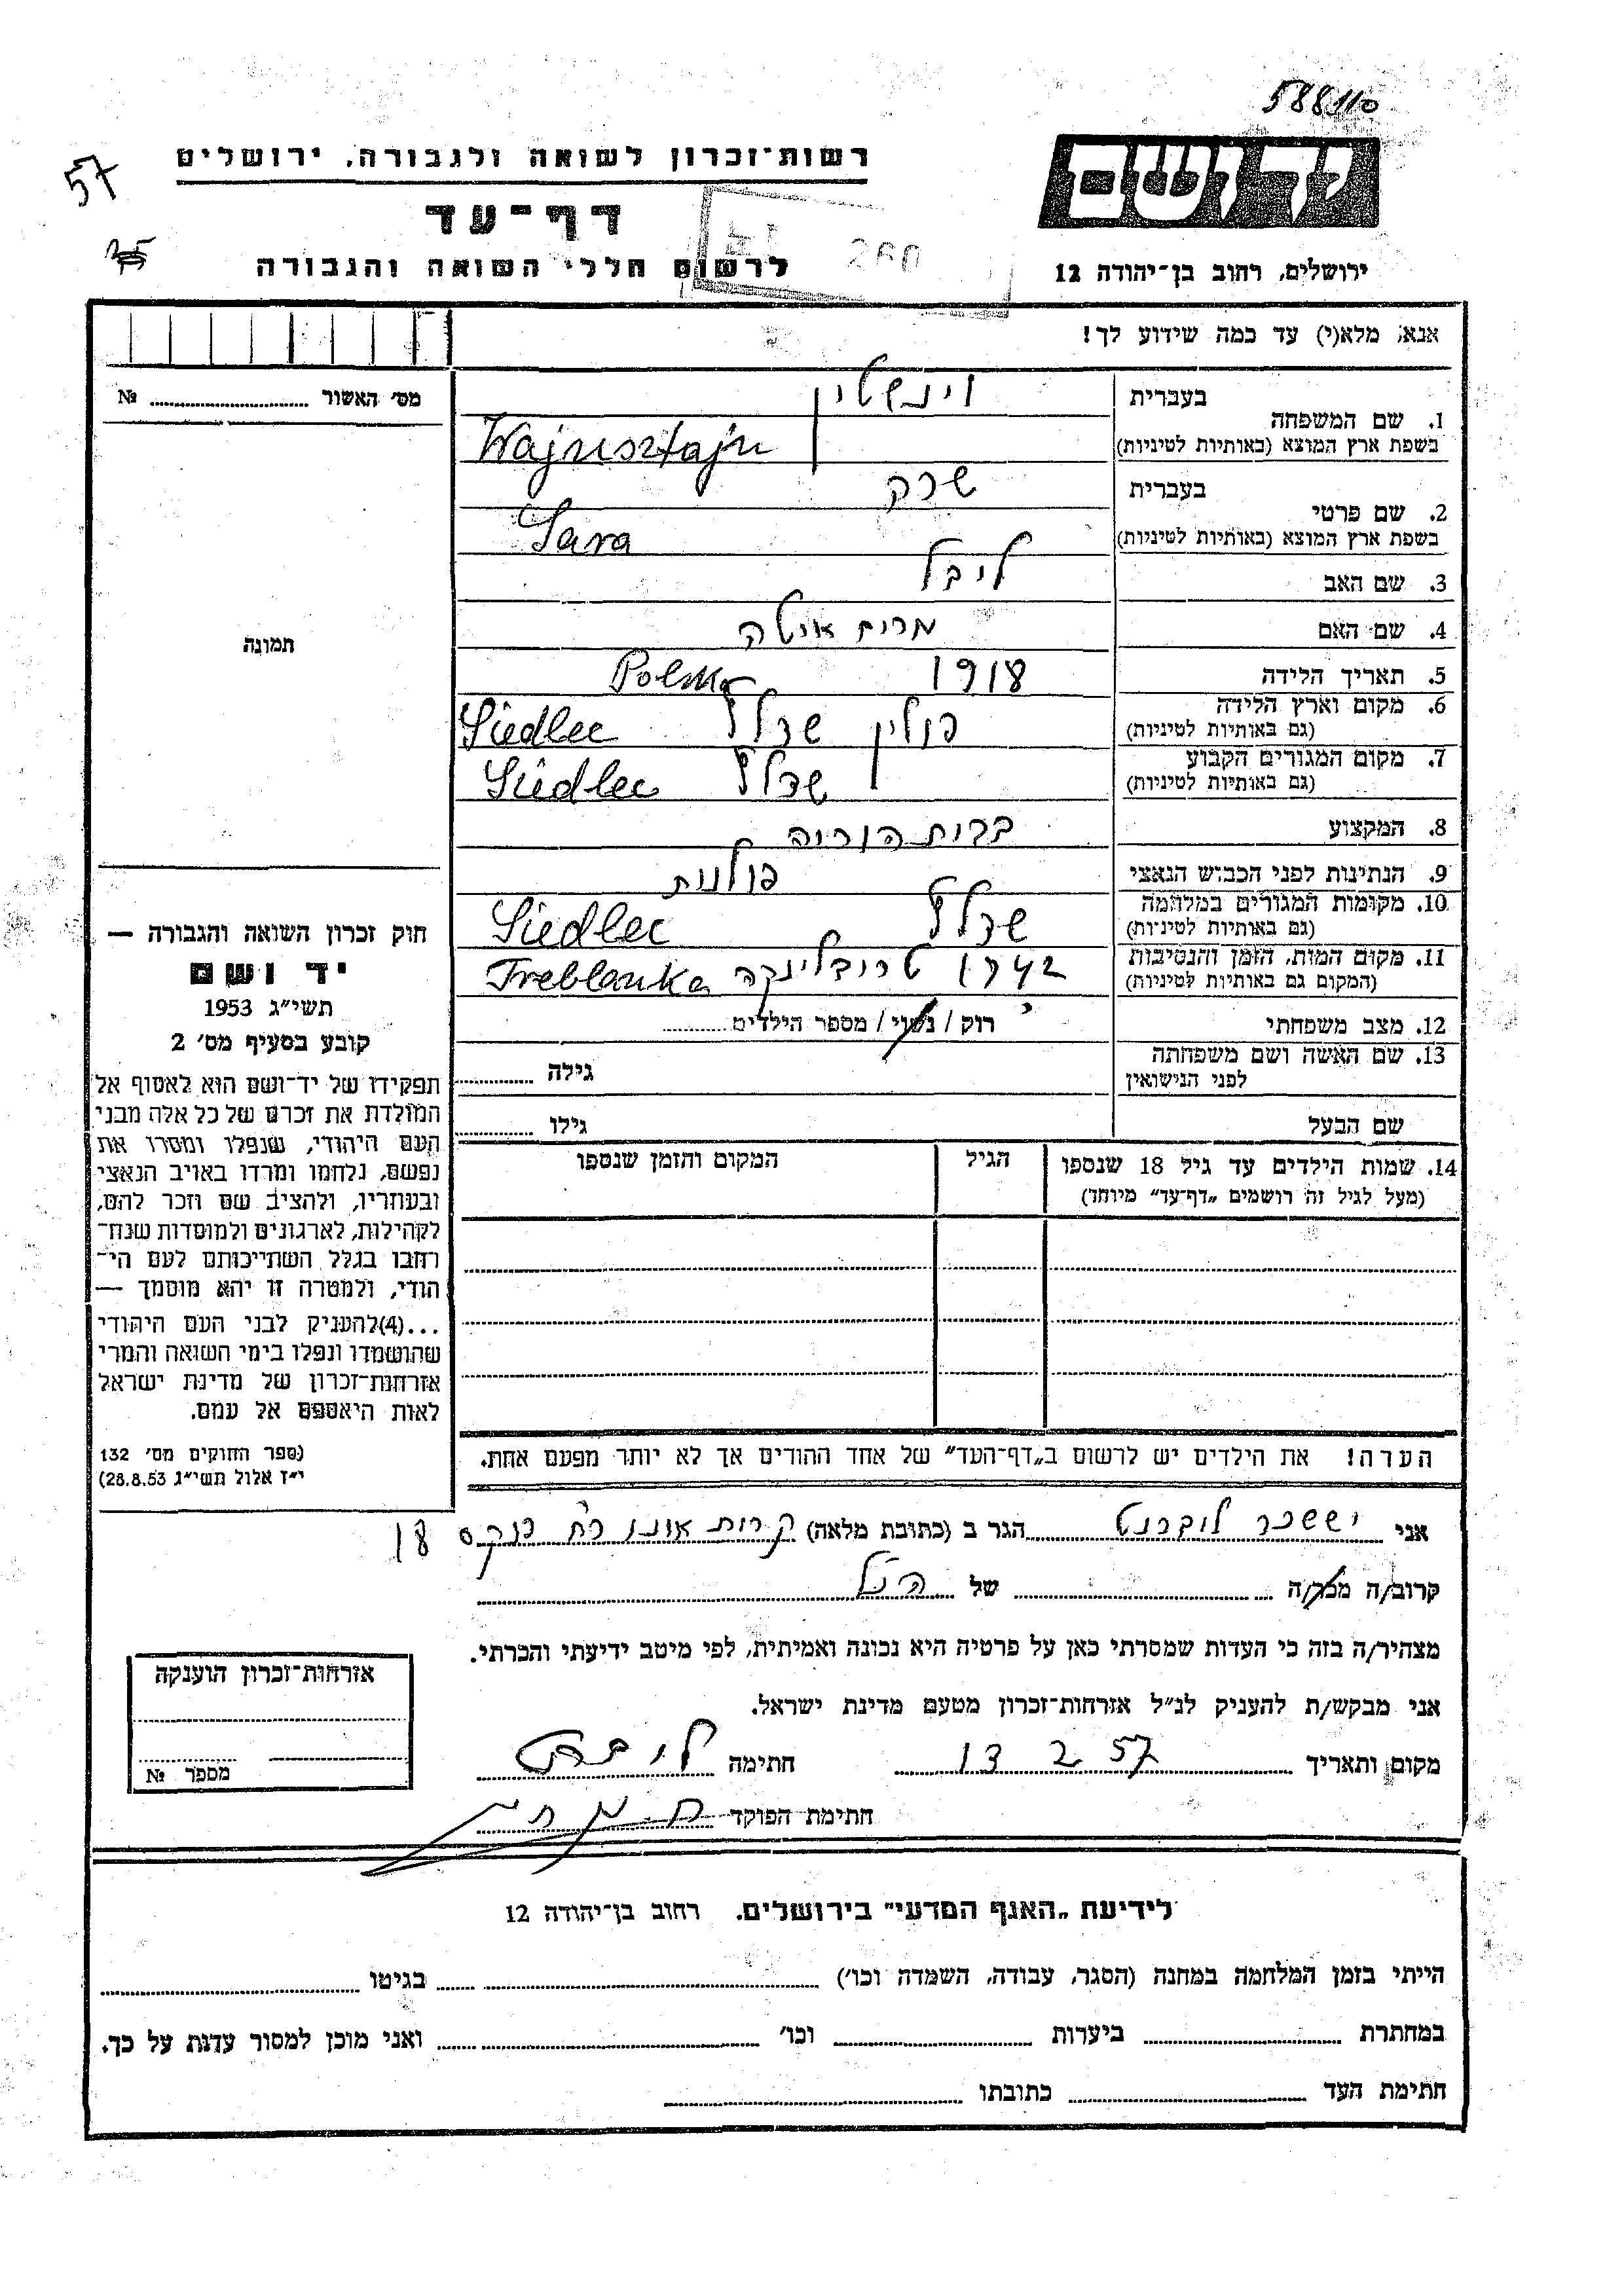 588110
57
יד ושם
רשות־זכרון לשואה ולגבורה, ירושלים
דף־עד
לרשום חללי השואה והגבורה
260
ירושלים, רחוב בן־יהודה 12
אנא, מלא(י) עד כמה שידוע לך!
מס׳ האשור № 
1. שם המשפחה
בעברית וינשטין
בשפת ארץ המוצא (באותיות לטיניות) Wajnsztajn
2. שם פרטי
בעברית שרה
בשפת ארץ המוצא (באותיות לטיניות) Sara
3. שם האב לייבל
4. שם האם מרים איטה
5. תאריך הלידה 1918 Polska
6. מקום וארץ הלידה (גם באותיות לטיניות) פולין שדלץ Siedlec
7. מקום המגורים הקבוע (גם באותיות לטיניות) שדלץ Siedlec
8. המקצוע בבית הוריה
9. הנתינות לפני הכבוש הנאצי פולנית
10. מקומות המגורים במלחמה (גם באותיות לטיניות) שדלץ Siedlec
11. מקום המות, הזמן והנסיבות (המקום גם באותיות לטיניות) 1942 טרבלינקה Treblanka
12. מצב משפחתי רוק / נשוי / מספר הילדים
13. שם האשה ושם משפחתה לפני הנישואין גילה
שם הבעל גילו
14. שמות הילדים עד גיל 18 שנספו
(מעל לגיל זה רושמים „דף־עד” מיוחד)
הגיל
המקום והזמן שנספו
הערה! את הילדים יש לרשום ב„דף־העד” של אחד ההורים אך לא יותר מפעם אחת.
תמונה
חוק זכרון השואה והגבורה —
יד ושם
תשי״ג 1953
קובע בסעיף מס׳ 2
תפקידו של יד־ושם הוא לאסוף אל
המולדת את זכרם של כל אלה מבני
העם היהודי, שנפלו ומסרו את
נפשם, נלחמו ומרדו באויב הנאצי
ובעוזריו, ולהציב שם וזכר להם,
לקהילות, לארגונים ולמוסדות שנח־
רבו בגלל השתייכותם לעם הי־
הודי, ולמטרה זו יהא מוסמך —
...(4)להעניק לבני העם היהודי
שהושמדו ונפלו בימי השואה והמרי
אזרחות־זכרון של מדינת ישראל
לאות היאספם אל עמם.
(ספר החוקים מס׳ 132
י״ז אלול תשי״ג 28.8.53)
אני יששכר ליברנט הגר ב (כתובת מלאה) קרית אונו רח פנקס 18
קרוב/ה מכר/ה של הנ״ל
מצהיר/ה בזה כי העדות שמסרתי כאן על פרטיה היא נכונה ואמיתית, לפי מיטב ידיעתי והכרתי.
אני מבקש/ת להעניק לנ״ל אזרחות־זכרון מטעם מדינת ישראל.
מקום ותאריך 13 2 57 חתימה
חתימת הפוקד
אזרחות־זכרון הוענקה
מספר №
לידיעת „האגף המדעי” בירושלים. רחוב בן־יהודה 12
הייתי בזמן המלחמה במחנה (הסגר, עבודה, השמדה וכו׳) בגיטו
במחתרת ביערות וכו׳ ואני מוכן למסור עדות על כך.
חתימת העד כתובתו